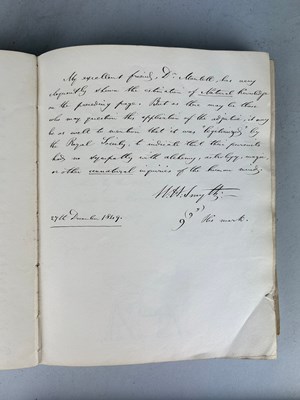 My excellent friend, Dr. Mantell, has very
eloquently shown the cultivation of Natural knowledge
in the preceding page. But as there may be those
who may question the application of the adjective, it may
be as well to mention that it was by
the Royal Society, to indicate that their pursuits
had no sympathy with alchemy, astrology, magic
or other unnatural inquiries of the human mind.
W. H. Smyth
27th December 1849.
His mark.